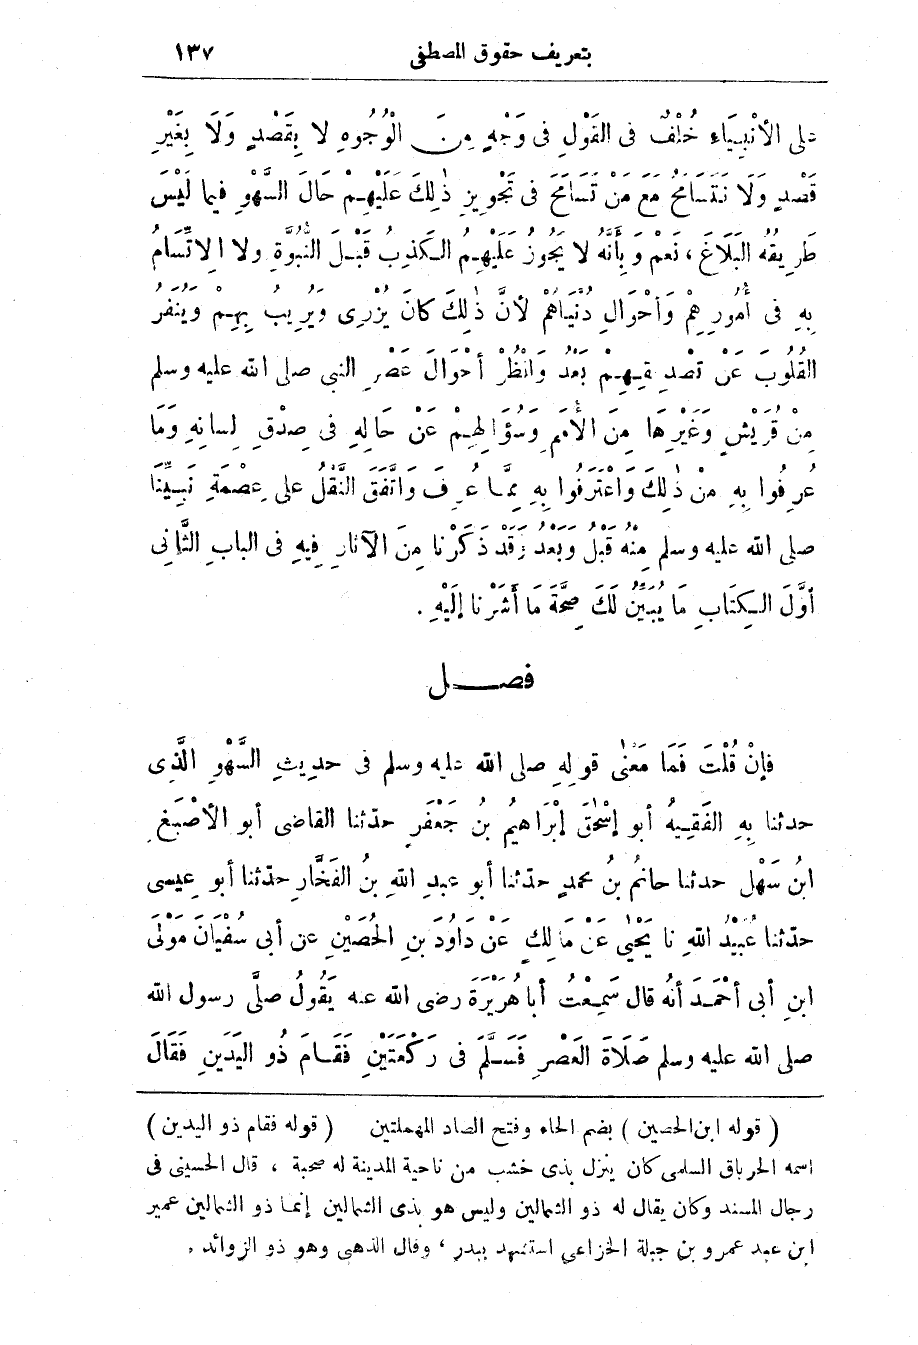 بتعريف حقوق المصطفى ١٣٧
على الأنْبِيَاءِ خُلْفٌ فى القَوْلِ فى وَجْهٍ مِنَ الْوُجُوهِ لا بِقَصْدٍ وَلَا بِغَيْرِ
قَصْدٍ وَلَا نَتَسَامَحُ مَعَ مَنْ تَسَامَحَ فى تَجْوِيزِ ذٰلِكَ عَلَيْهِمْ حَالَ السَّهْوِ فيما لَيْسَ
طَرِيقُهُ البَلَاغَ ، نَعَمْ وَبِأَنَّهُ لا يَجُوزُ عَلَيْهِمُ الكَذِبُ قَبْلَ النُّبُوَّةِ ولا الاتِّسَامُ
بِهِ فى أُمُورِهِمْ وَأَحْوَالِ دُنْيَاهُمْ لأنَّ ذٰلِكَ كانَ يُزْرِى وَيُرِيبُ بِهِمْ وينفرُ
القُلُوبَ عَنْ تَصْدِيقِهِمْ بَعْدُ وَانْظُرْ أحْوَالَ عَصْرِ النبى صلى الله عليه وسلم
مِنْ قُرَيْشٍ وَغَيْرِهَا مِنَ الأُمَمِ وَسُؤَالِهِمْ عَنْ حَالِهِ فى صِدْقِ لِسانِهِ وَمَا
عُرِفُوا بِهِ مِنْ ذٰلِكَ وَاعْتَرَفُوا بِهِ مِمَّا عُرِفَ وَاتَّفَقَ النَّقْلُ على عِصْمَةِ نَبِيِّنَا
صلى الله عليه وسلم مِنْهُ قَبْلُ وَبَعْدُ وَقَدْ ذَكَرْنا مِنَ الآثارِ فِيهِ فى البابِ الثَّانِى
أوَّلَ الكِتَابِ مَا يُبَيِّنُ لَكَ صِحَّةَ مَا أَشَرْنا إلَيْهِ .
فصل
فإنْ قُلْتَ فَمَا مَعْنٰى قوله صلى الله عليه وسلم فى حديثِ السَّهْوِ الَّذِى
حدثنا بِهِ الفَقِيهُ أبو إسْحٰقَ إبْرَاهِيمُ بنُ جَعْفَرٍ حدّثنا القاضى أبو الأصْبَغِ
ابنُ سَهْلٍ حدثنا حاتمُ بنُ محمدٍ حدّثنا أبو عبدِ اللهِ بنُ الفَخَّارِ حدّثنا أبو عيسى
حدّثنا عُبَيْدُ اللهِ نا يَحْيٰى عَنْ مَالِكٍ عَنْ دَاوُدَ بنِ الحُصَيْنِ عن أبى سُفْيَانَ مَوْلٰى
ابنِ أبى أحْمَدَ أنهُ قال سَمِعْتُ أبا هُرَيْرَةَ رضى الله عنه يَقُولُ صلَّى رسول الله
صلى الله عليه وسلم صَلَاةَ العَصْرِ فَسَلَّمَ فى رَكْعَتَيْنِ فَقَامَ ذُو اليَدَيْنِ فَقَالَ
( قوله ابن الحصين ) بضم الحاء وفتح الصاد المهملتين ( قوله فقام ذو اليدين )
اسمه الخرباق السلمى كان ينزل بذى خشب من ناحية المدينة له صحبة ، قال الحسينى فى
رجال المسند وكان يقال له ذو الشمالين وليس هو بذى الشمالين إنما ذو الشمالين عمير
ابن عبد عمرو بن جبلة الخزاعى استشهد ببدر ، وقال الذهبى وهو ذو الزوائد .